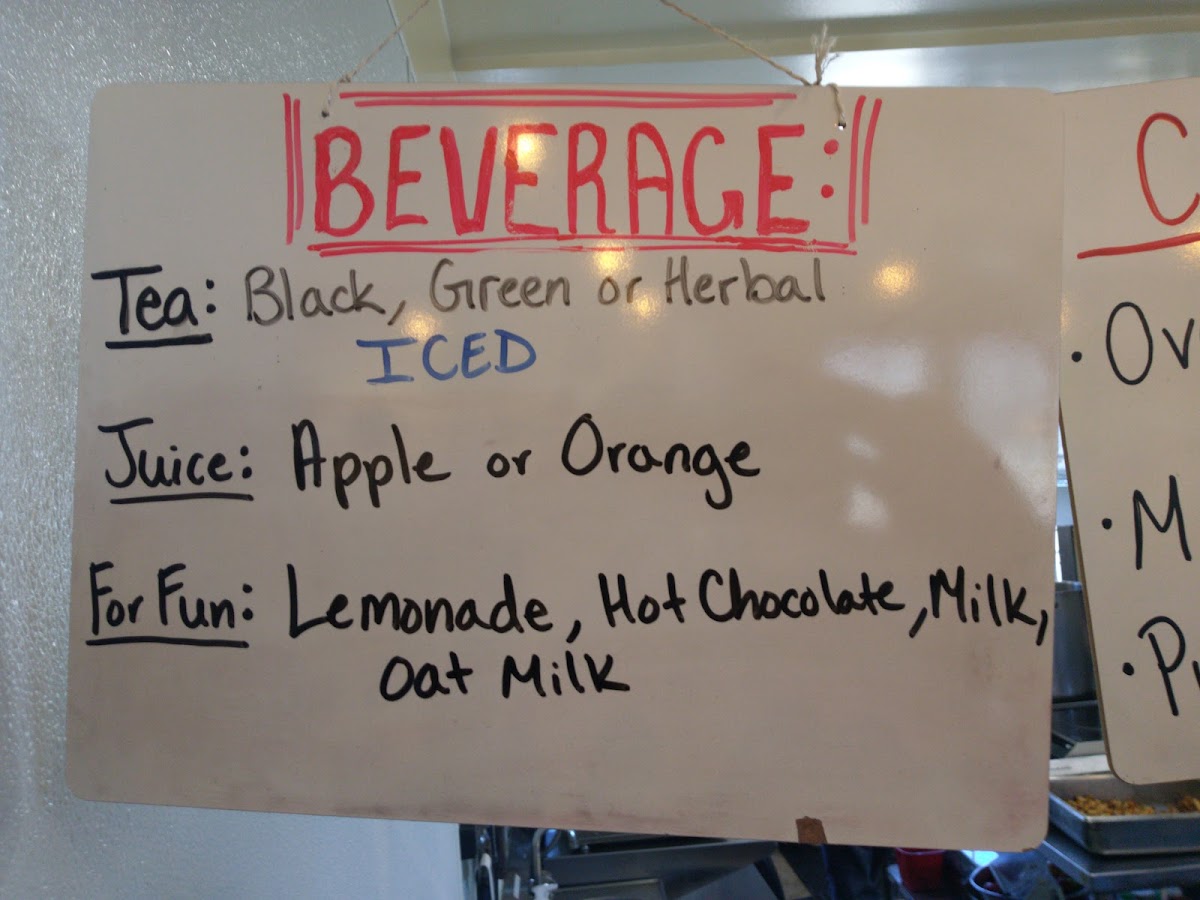 BEVERAGE:
Tea: Black, Green or Herbal
ICED
Juice: Apple or Orange
For Fun: Lemonade, Hot Chocolate, Milk,
Oat Milk